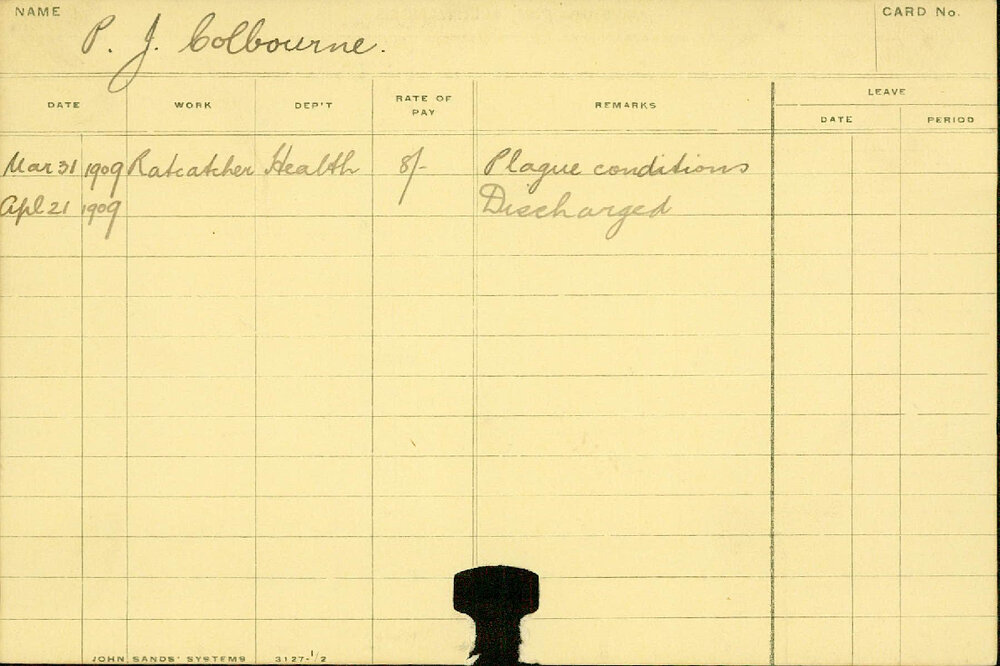 NAME
CARD No.
P. J. Colbourne.
DATE WORK DEP'T RATE OF PAY REMARKS LEAVE
DATE PERIOD
Mar 31 1909 Ratcatcher Health 8/- Plague conditions
Apl 21 1909 Discharged
JOHN SANDS' SYSTEMS 3127-1/2